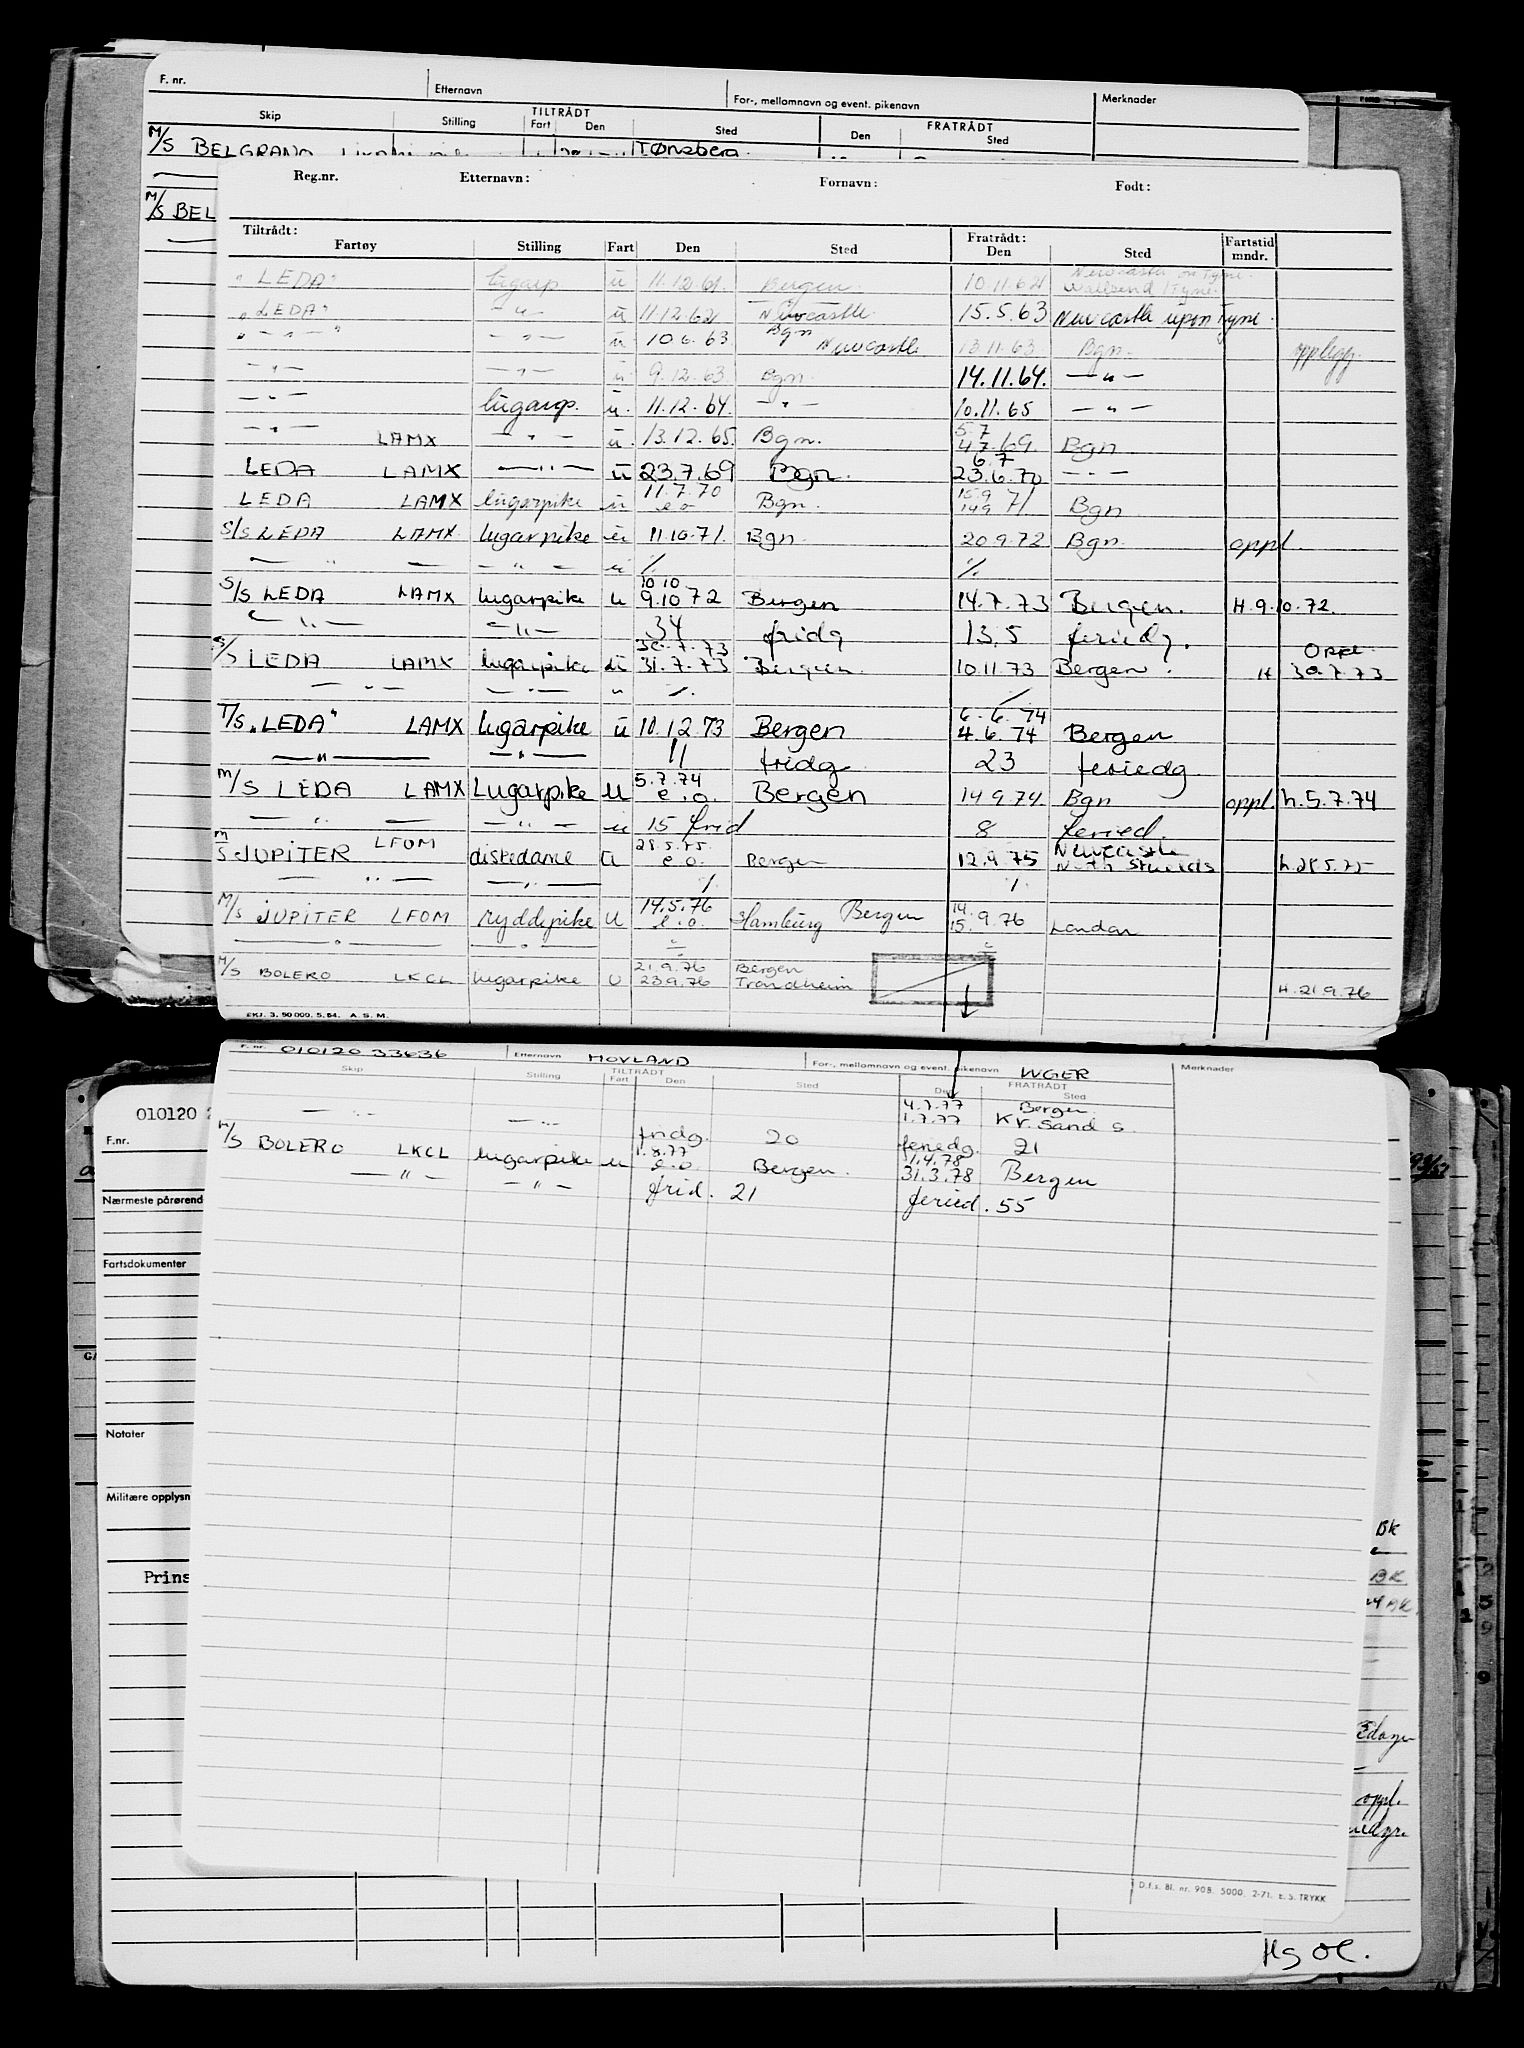 F. nr. Etternavn For-, mellomnavn og event. pikenavn Merknader
Skip Stilling TILTRÅDT Fart Den Sted FRATRÅDT Den Sted
M/S BELGRANO Tønsberg
M/S BEL
Reg.nr. Etternavn: Fornavn: Født:
Tiltrådt: Fratrådt:
Fartøy Stilling Fart Den Sted Den Sted Fartstid mndr.
"LEDA" lugarp. u 11.12.61. Bergen. 10.11.62 Newcastle on Tyne. Wallsend / Tyne.
"LEDA" - " - u 11.12.62 Newcastle. 15.5.63 Newcastle upon Tyne.
" - " - " - " - u 10.6.63. Bgn Newcastle 13.11.63. Bgn. opplegg.
- " - - " - u 9.12.63. Bgn. 14.11.64. - " -
- " - lugarp. u. 11.12.64. - " - 10.11.65 - " -
- " - LAMX - " - u. 13.12.65. Bgn. 5.7 4.7.69 Bgn
LEDA LAMX - " - u 23.7.69 Bgn. 6.7 23.6.70 - " -
LEDA LAMX lugarpike u 11.7.70 e.o Bgn. 15.9 14.9 71 Bgn
S/S LEDA LAMX lugarpike u 11.10.71. Bgn 20.9.72 Bgn. oppl.
- " - - " - u % %
S/S LEDA LAMX lugarpike u 10.10. 9.10 72 Bergen 14.7.73 Bergen. H. 9.10.72.
- " - - " - 34 fridg 13.5 feriedg.
S/S LEDA LAMX lugarpike u 30.7.73 31.7.73 Bergen 10.11.73 Bergen. Oppl. H 30.7.73
- " - - " - " %. /
T/S "LEDA" LAMX lugarpike u 10.12.73 Bergen 6.6.74 4.6.74 Bergen
- " - - " - 11 fridg 23 feriedg.
M/S LEDA LAMX Lugarpike u 5.7.74 e.o. Bergen 14.9.74. Bgn oppl. h. 5.7.74
- " - - " - u 15 frid 8 feried.
M/S JUPITER LFOM distedame u 28.5.75. e.o. Bergen 12.9.75 Newcastle North Shields h.28.5.75
- " - - " - % %
M/S JUPITER LFOM ryddepike u 14.5.76 e.o. Hamburg Bergen 14. 15. 9.76 London
- " - - " -
M/S BOLERO LKCL lugarpike u 21.9.76 23.9.76 Bergen Trondheim H. 21.9.76
EKJ. 3. 50 000. 5. 64. A. S. M.
F. nr. 010120 33636 Etternavn HOVLAND For-, mellomnavn og event. pikenavn INGER Merknader
Skip Stilling TILTRÅDT Fart Den Sted FRATRÅDT Den Sted
- " - - " - 4.7.77 1.7.77 Bergen Kr. Sand S.
fridg. 20 feriedg. 21
M/S BOLERO LKCL lugarpike u 1.8.77 e.o. Bergen. 1.4.78 31.3.78 Bergen
- " - - " - frid. 21 feried. 55
D.f.s. Bl. nr. 90B. 5000. 2-71. E. S. TRYKK
010120
F.nr.
Nærmeste pårørend
Fartsdokumenter
Notater
Militære opplysn
Prins
BK
BK
BK
oppl.
Hg Ol.